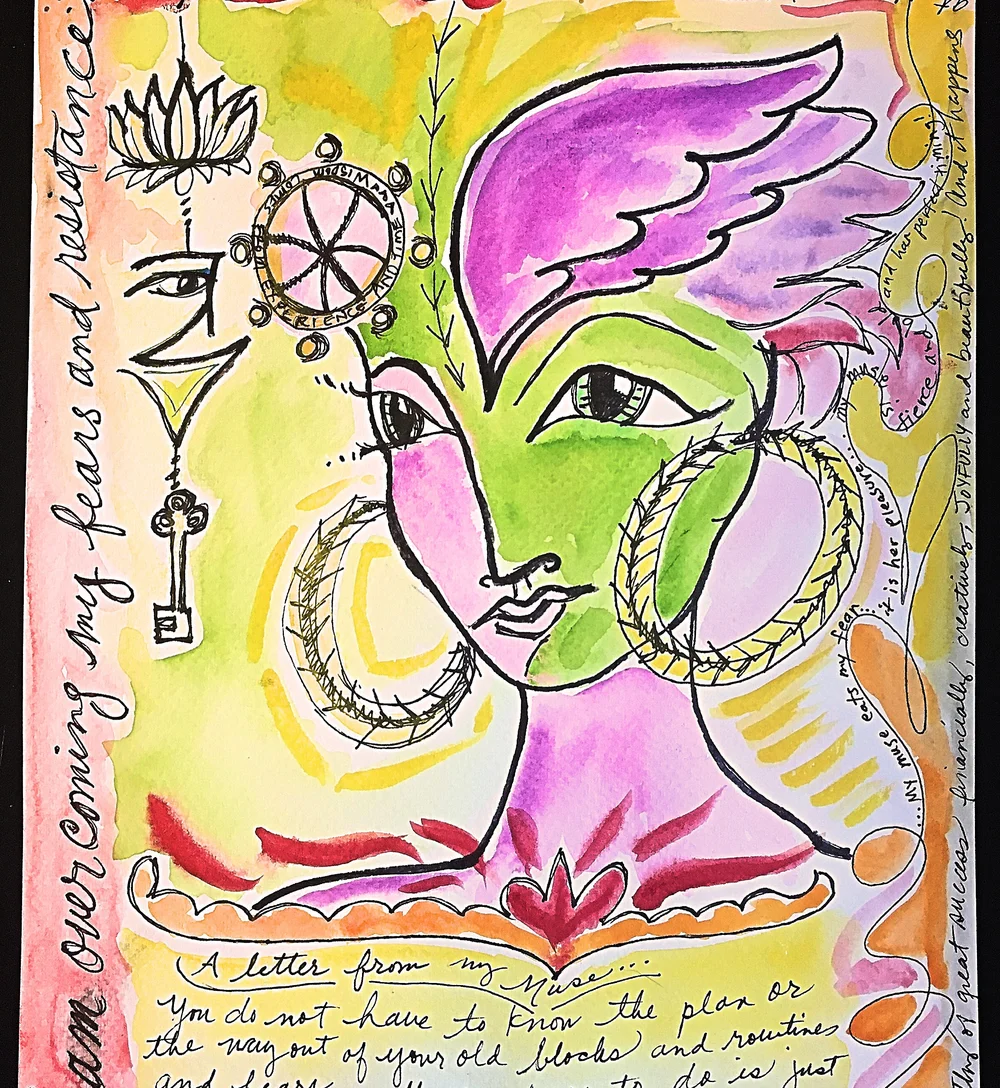 am overcoming my fears and resistance
WISDOM COMES
WITH
EXPERIENCE
A letter from my Muse...
You do not have to know the plan or
the way out of your old blocks and routines
and fears to do is just
....My muse eats my fear..
it is her pleasure...
my muse
is
fierce and
and has perfect timing!
of great success financially, creatively, JOYFULLY and beautifully! And it happens